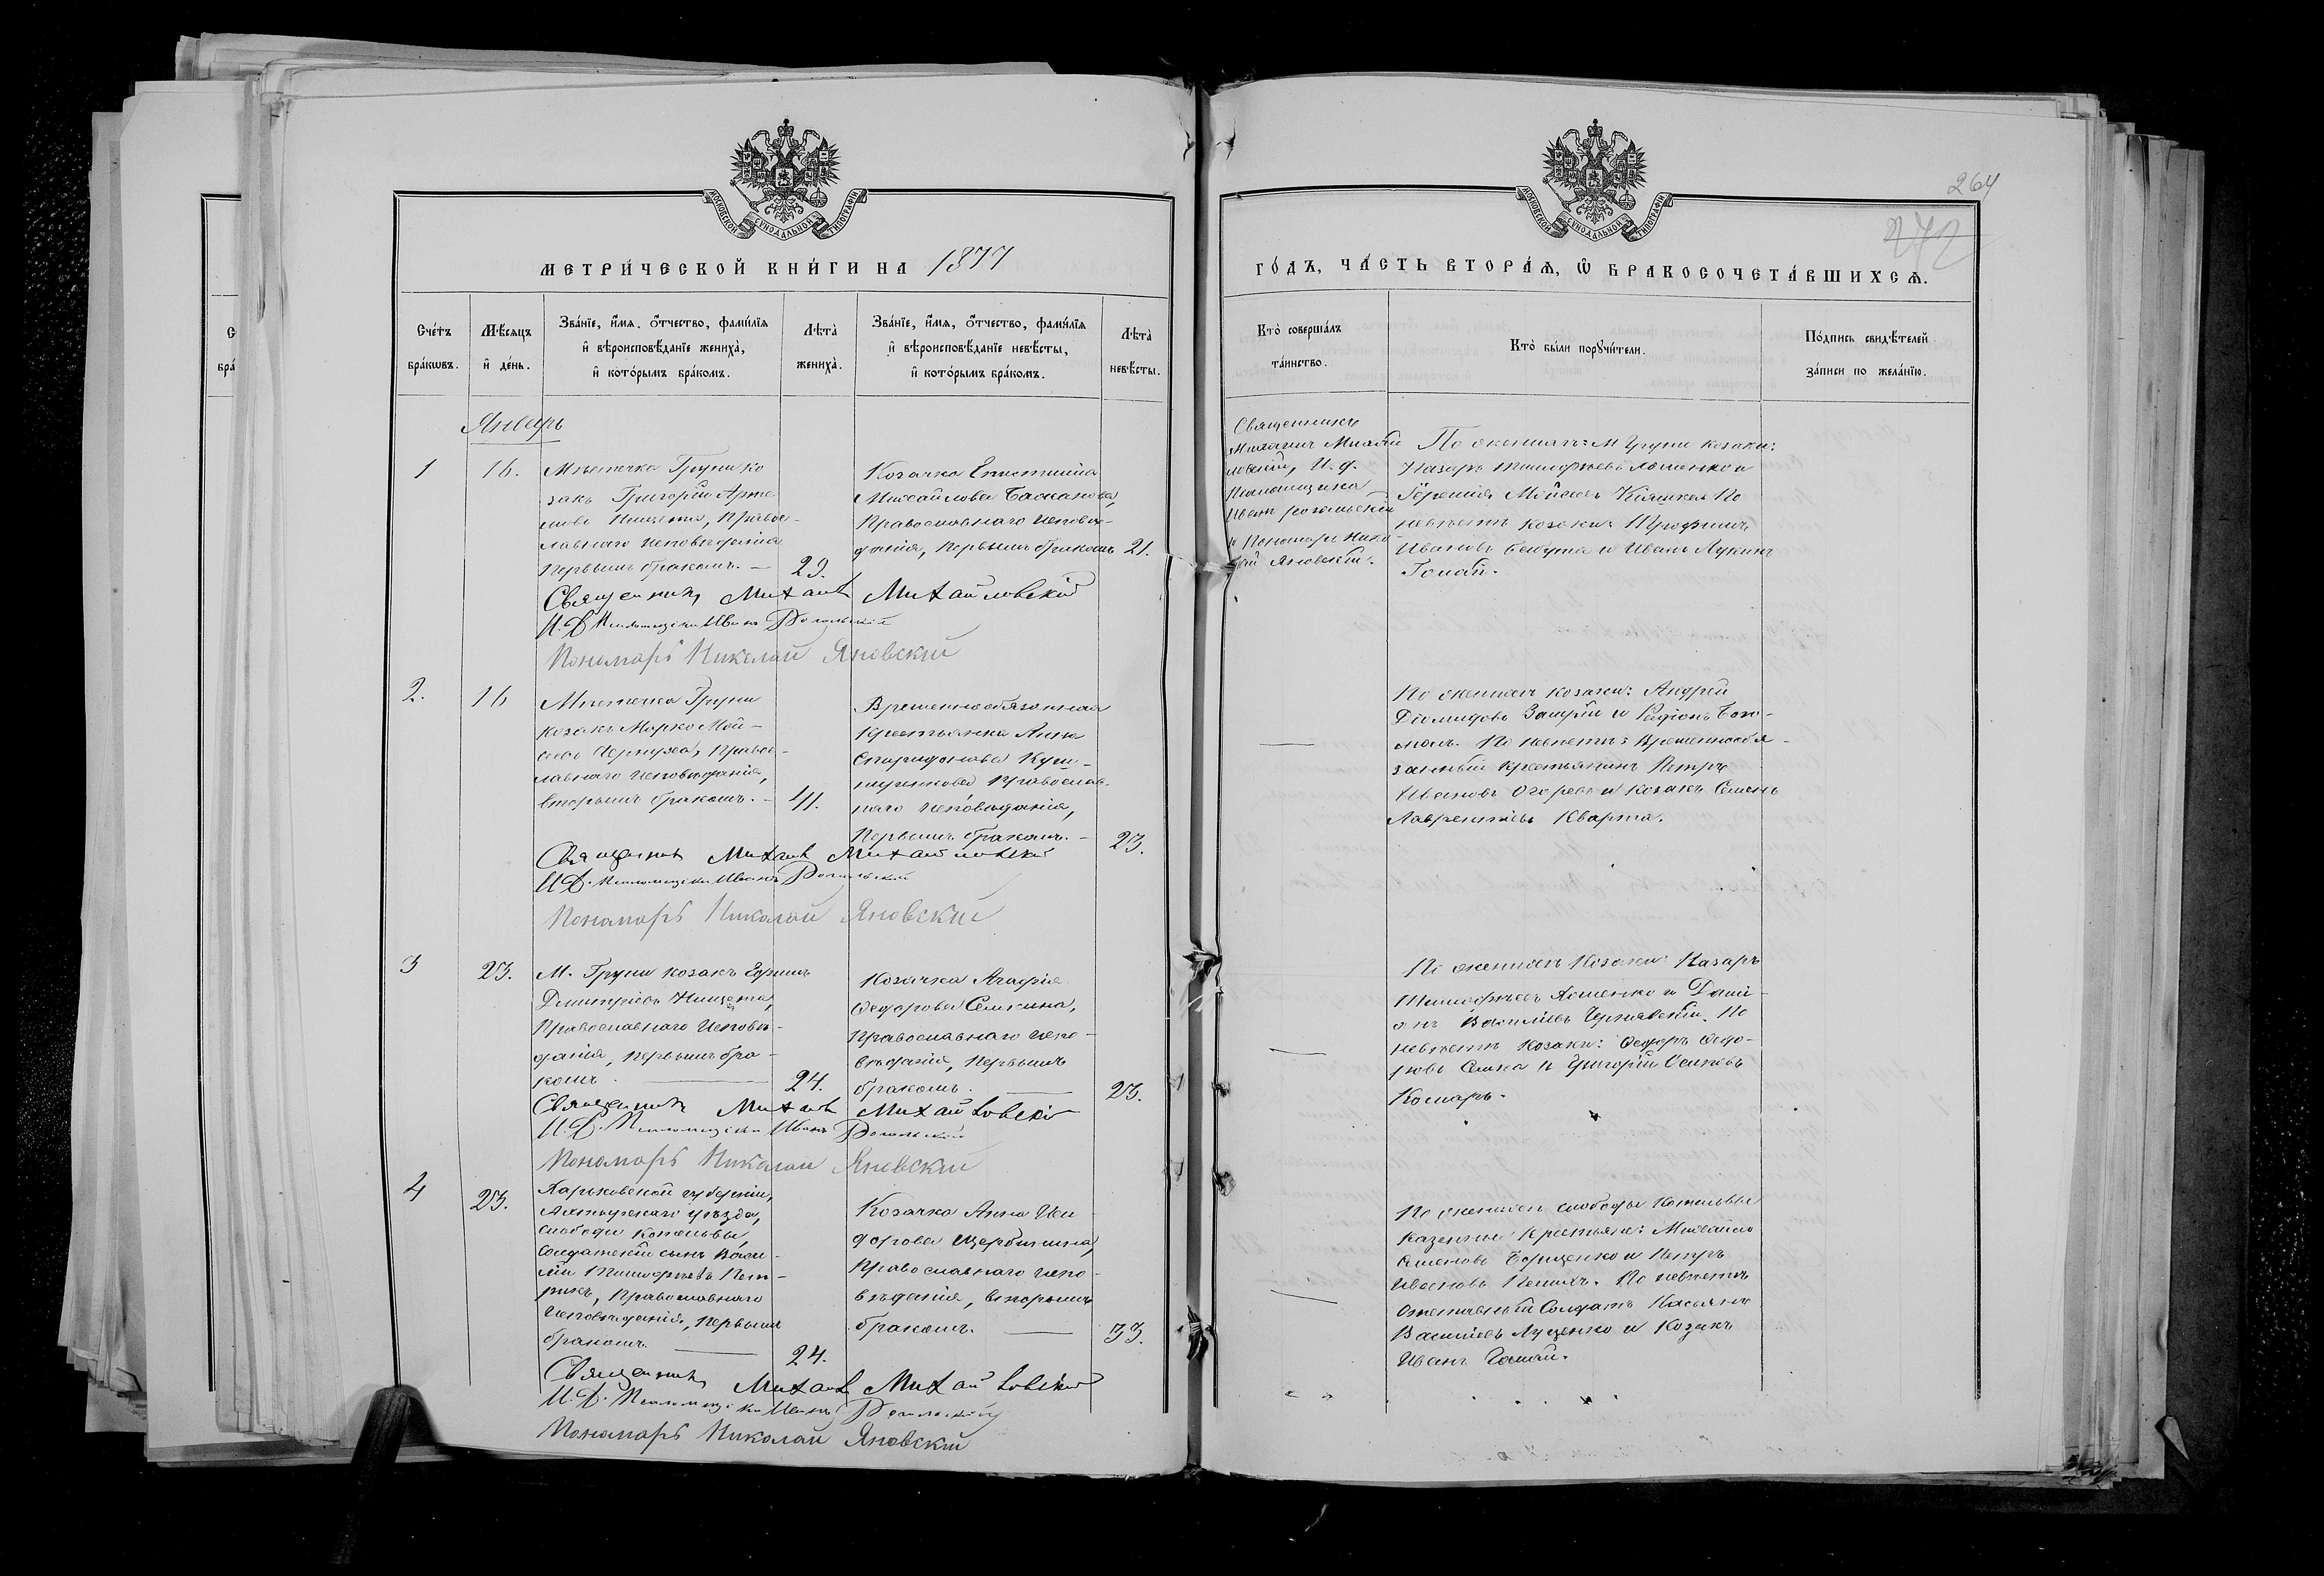 МОСКОВСКОЙ СѴНОДАЛЬНОЙ ТИПОГРАФІИ
МЕТРИ́ЧЕСКОЙ КНИ́ГИ НА 1877
Сче́тъ бра́кѡвъ.
Мѣ́сяцъ и҆ де́нь.
Зва́нїе, и҆́мя, ѻ҆́тчество, фами́лїя
и҆ вѣроисповѣ́данїе жениха̀,
и҆ кото́рымъ бра́комъ.
Лѣ́та̀ жениха̀.
Зва́нїе, и҆́мя, ѻ҆́тчество, фами́лїя
и҆ вѣроисповѣ́данїе невѣ́сты,
и҆ кото́рымъ бра́комъ.
Лѣ́та̀ невѣ́сты.
Январь
1
16.
Мѣстечка Груни ко
закъ Григорій Арте
мовъ Нищета, Правос-
лавнаго исповѣданія
первымъ бракомъ. —
29.
Козачка
Михайлова
Православнаго исповѣ-
данія, первымъ бракомъ
21.
Священникъ Михаилъ Михайловскій
И. Д. Псаломщика Иванъ
Пономарь Николай Яновскій
2.
16
Мѣстечка Груни
козакъ Марко Мой-
сеевъ Чернуха, Правос-
лавнаго исповѣданія,
вторымъ бракомъ. —
41.
Временнообязанная
крестьянка Анна
Спиридонова
Православ-
наго исповѣданія,
первымъ бракомъ. —
23.
Священникъ Михаилъ Михайловскій
И. Д. Псаломщика Иванъ
Пономарь Николай Яновскій
3
23.
М. Груни козакъ Ефимъ
Дмитріевъ Нищета,
Православнаго исповѣ-
данія, первымъ бра-
комъ. —
24.
Козачка Агафія
Ѳедорова Семкина,
Православнаго испо-
вѣданія, первымъ
бракомъ. —
23.
Священникъ Михаилъ Михайловскій
И. Д. Псаломщика Иванъ
Пономарь Николай Яновскій
4
23.
Харьковской губерніи,
Ахтырскаго уѣзда,
слободы Котельвы,
Солдатскій сынъ Васи-
лій Тимофѣевъ Пет-
рикъ, Православнаго
исповѣданія, первымъ
бракомъ. —
24.
Козачка Анна
Щербинина,
Православнаго испо-
вѣданія, вторымъ
бракомъ. —
33.
Священникъ Михаилъ Михайловскій
И. Д. Псаломщика Иванъ
Пономарь Николай Яновскій
264
272
МОСКОВСКОЙ СѴНОДАЛЬНОЙ ТИПОГРАФІИ
ГО́ДЪ, ЧА́СТЬ ВТОРА́Ѧ, Ѡ҆ БРАКОСОЧЕТА́ВШИХСѦ.
Кто̀ соверша́лъ
та́инство.
Кто̀ бы́ли порꙋчи́тели.
По́дпись свидѣ́телей
за́писи по жела́нїю.
Священникъ
Михаилъ Михай
ловскій, И. д.
Псаломщика
Иванъ
и Пономарь Нико
лай Яновскій.
По женихѣ: М Груни козаки:
Назаръ Тимофѣевъ Яременко и
Іеремія Мойсеевъ Кияшка. По
невѣстѣ козаки: Трофимъ
Ивановъ и Иванъ Лукинъ
Гонай.
По женихѣ козаки: Андрей
Діомидовъ и Родіонъ Бого-
молъ. По невѣстѣ: Временнообя-
занный крестьянинъ Петръ
Ивановъ Огорев и козакъ Семенъ
Лаврентіевъ Кварта.
По женихѣ козаки: Назаръ
Тимофѣевъ Яременко и Дамі-
анъ Василіевъ Чернявскій. По
невѣстѣ козаки: Ѳедоръ Ѳедо-
ровъ Семка и Григорій Осиповъ
Комаръ.
По женихѣ слободы Котельвы
казенные крестьяне: Михайло
Семеновъ Борщенко и Петръ
Ивановъ По невѣстѣ
Отставный Солдатъ Касьянъ
Василіевъ Луценко и козакъ
Иванъ Гонай.